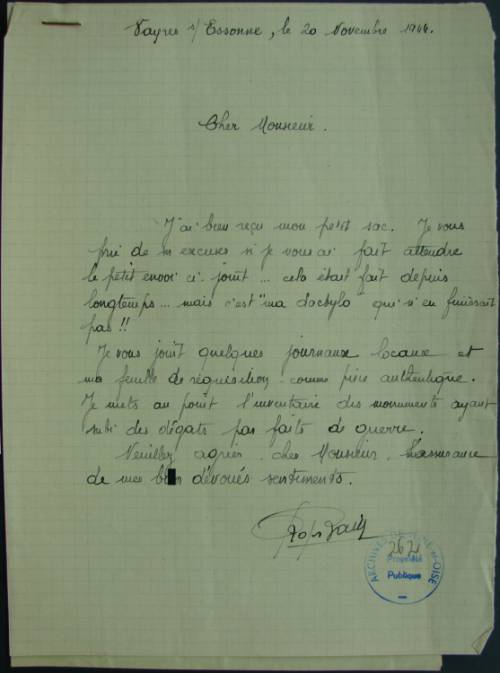 Vayres s/ Essonne, le 20 Novembre 1944.
Cher Monsieur.
J'ai bien reçu mon petit sac. Je vous
prie de m'excuser si je vous ai fait attendre
le petit envoi ci joint... cela était fait depuis
longtemps... mais c'est "ma dactylo" qui n'en finissait
pas!!
Je vous joint quelques journaux locaux et
ma feuille de réquisition comme pièce authentique.
Je mets au point l'inventaire des monuments ayant
subi des dégâts par faits de guerre.
Veuillez agréer, cher Monsieur, l'assurance
de mes dévoués sentiments.
ARCHIVES DE SEINE-et-OISE
262
Propriété
Publique